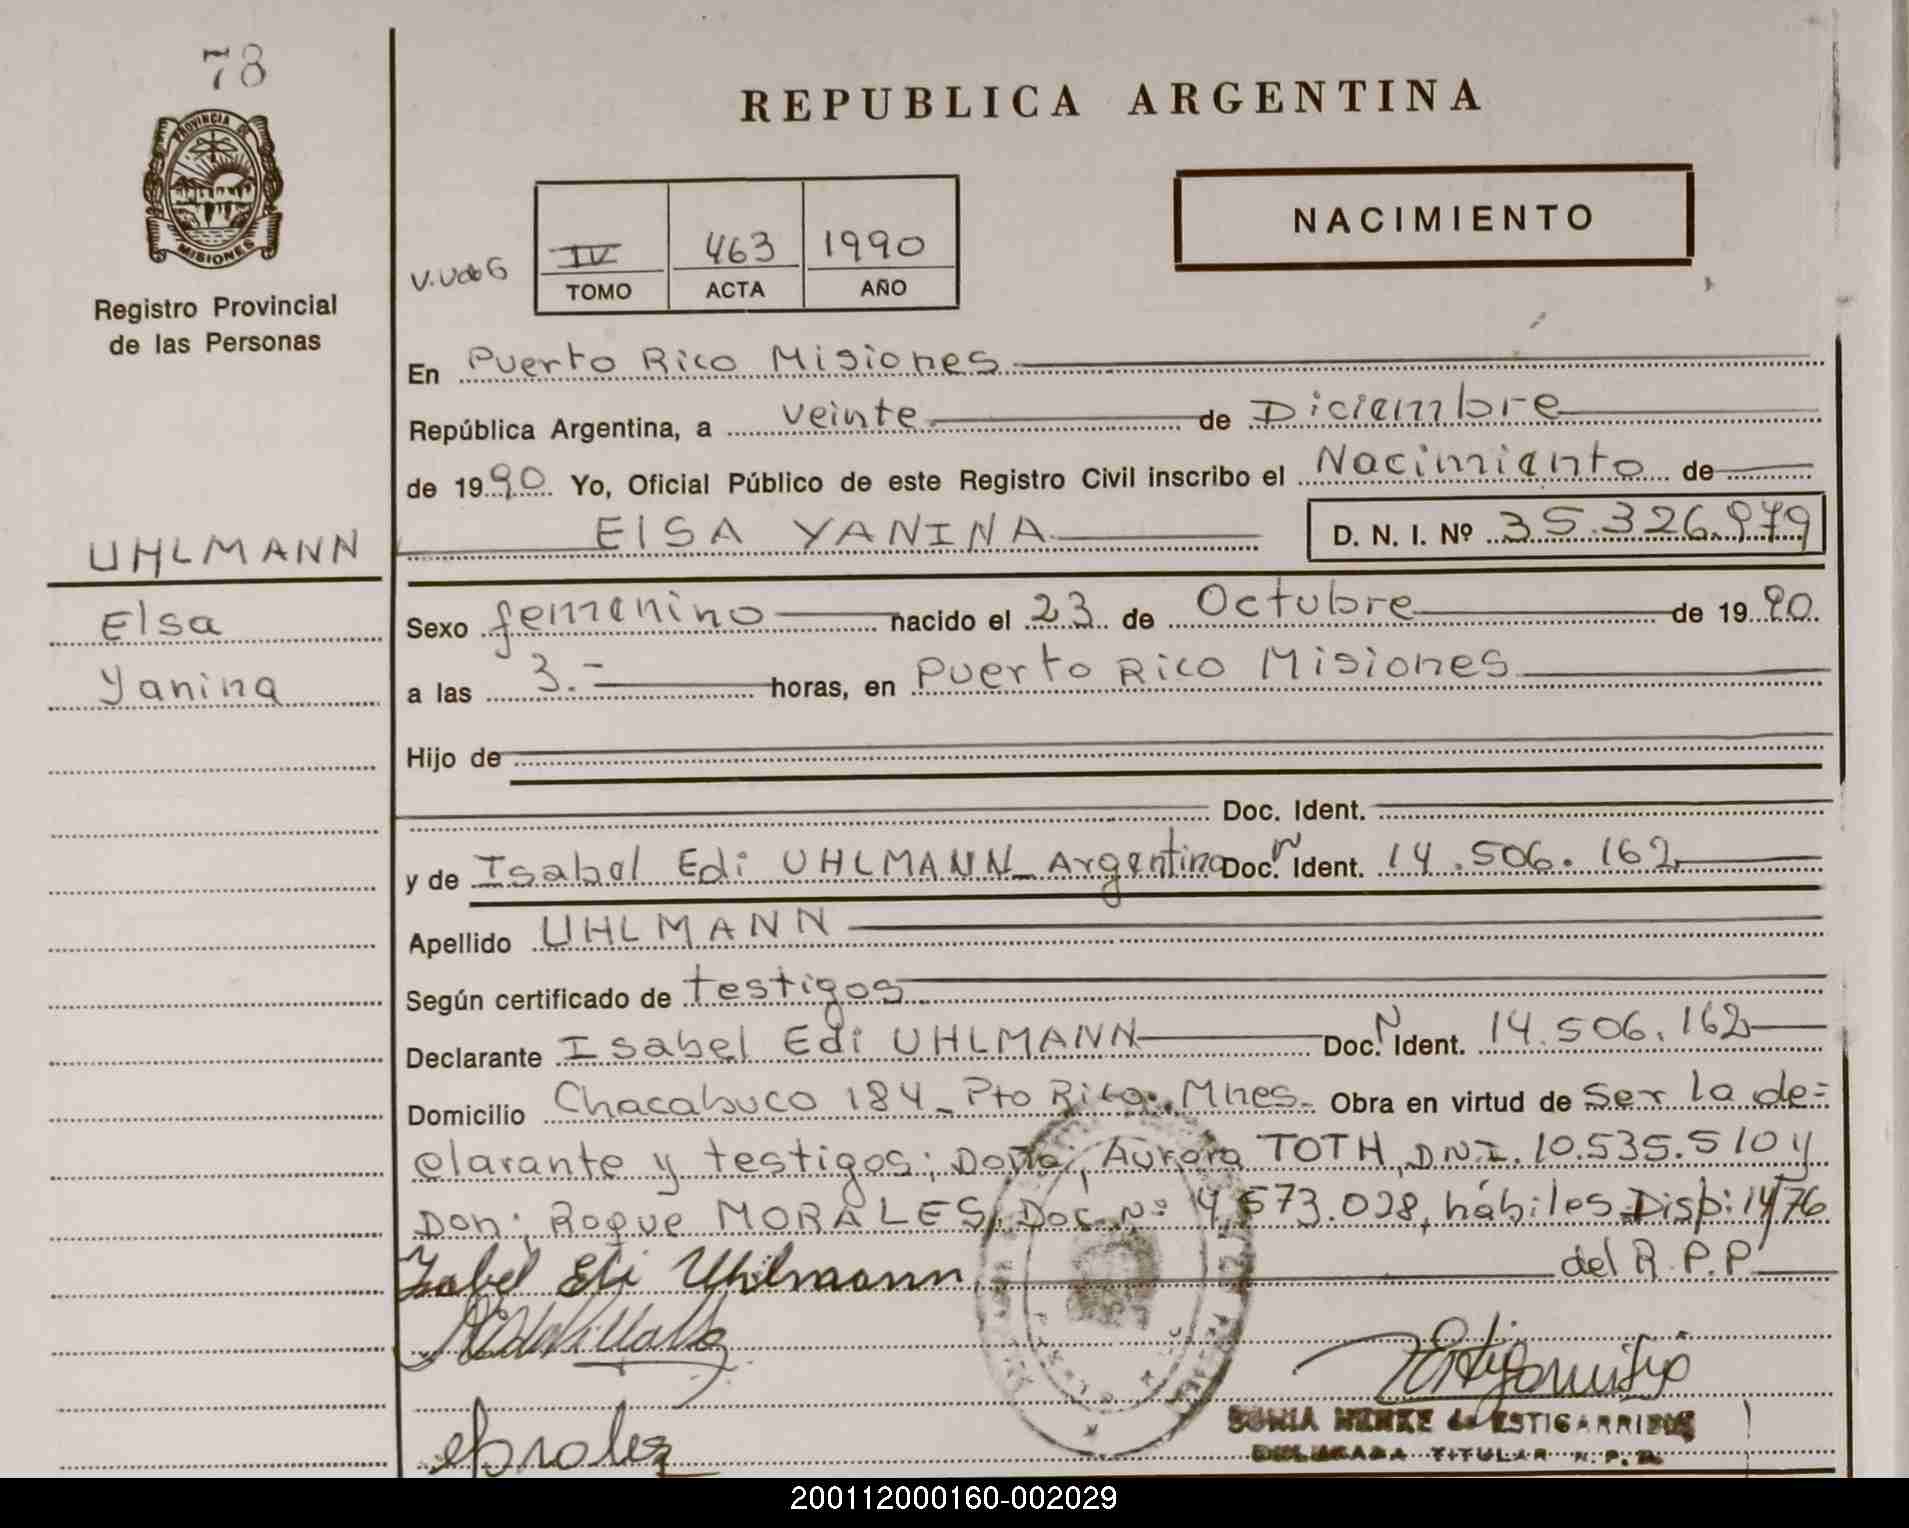 78
PROVINCIA DE
MISIONES
Registro Provincial
de las Personas
REPUBLICA ARGENTINA
NACIMIENTO
IV 463 1990
TOMO ACTA AÑO
En Puerto Rico Misiones
República Argentina, a veinte de Diciembre
de 1990 Yo, Oficial Público de este Registro Civil inscribo el Nacimiento de
UHLMANN
ElSA YANINA D. N. I. Nº 35.326.979
Elsa
Yanina
Sexo femenino nacido el 23 de Octubre de 1990
a las 3.- horas, en Puerto Rico Misiones
Hijo de
Doc. Ident.
y de Isabel Edi UHLMANN_ Argentina Doc. N Ident. 14.506.162
Apellido UHLMANN
Según certificado de testigos
Declarante Isabel Edi UHLMANN Doc. N Ident. 14.506.162
Domicilio Chacabuco 184_ Pto Rico. Mnes- Obra en virtud de Ser la de=
clarante y testigos; Doña; Aurora TOTH, DNI. 10.535.510 y
Don; Roque MORALES, Doc Nº 4.573.028, hábiles Disp: 14/76
del R.P.P
Isabel Edi Uhlmann
SONIA MENKE de ESTIGARRIBIA
TITULAR R. P. P.
200112000160-002029